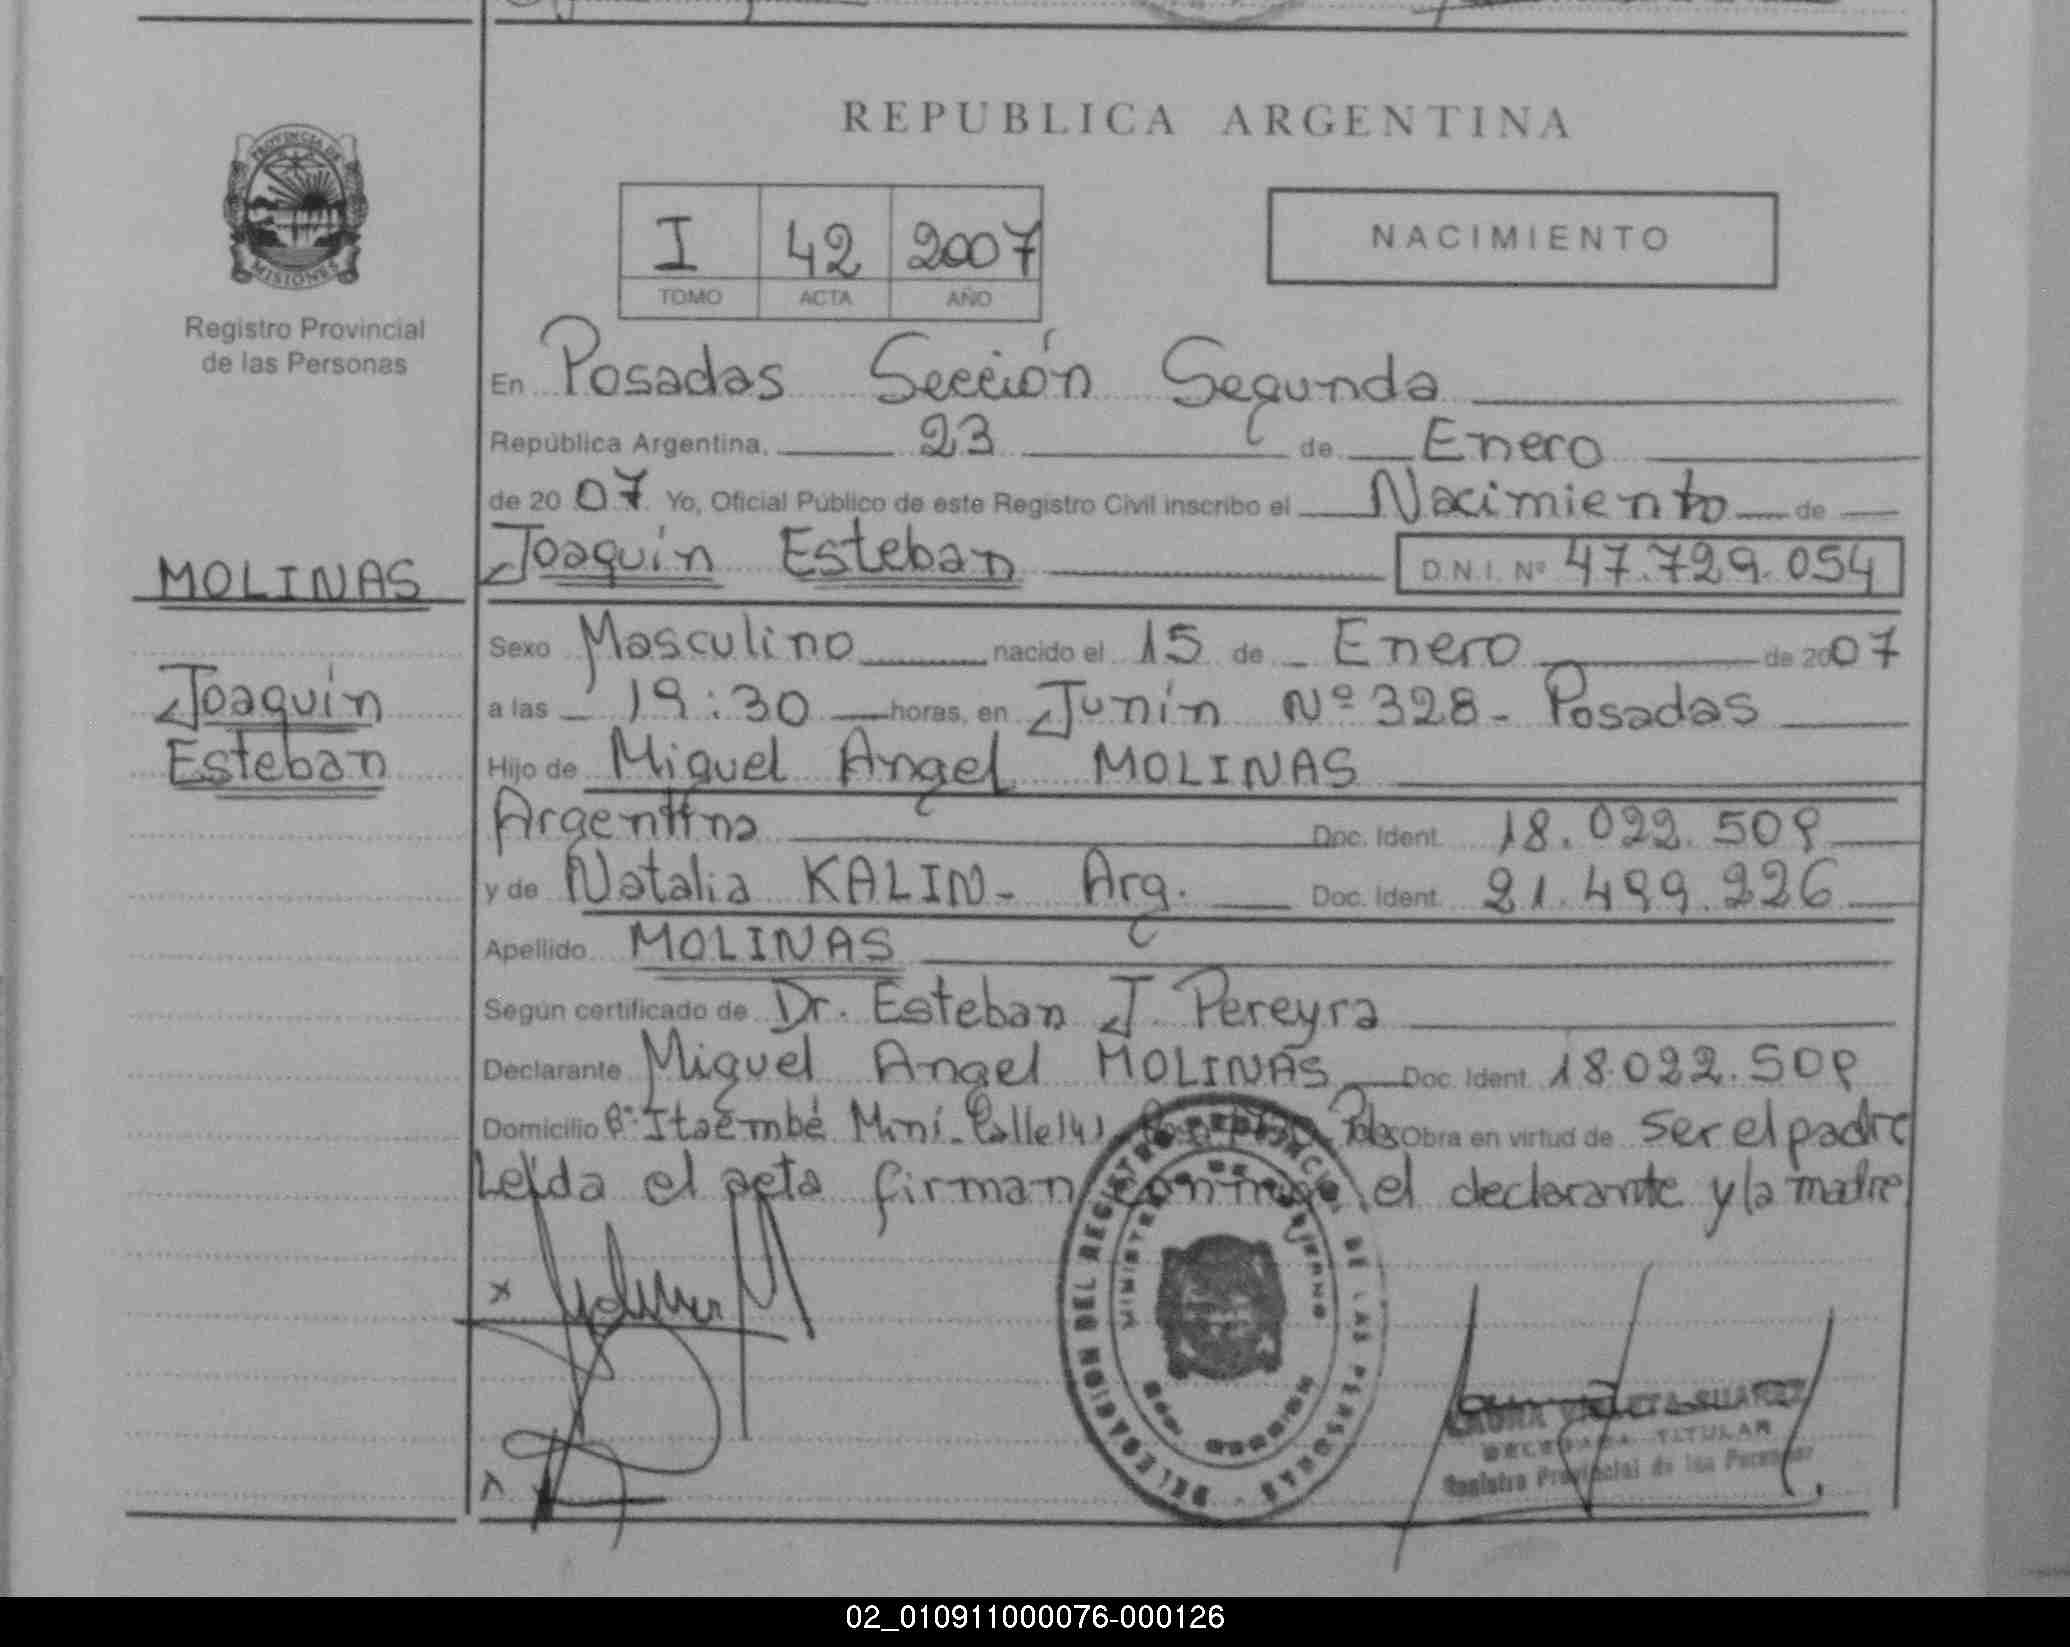 REPUBLICA ARGENTINA
PROVINCIA DE
MISIONES
Registro Provincial
de las Personas
I 42 2007
TOMO ACTA AÑO
NACIMIENTO
En Posadas Sección Segunda
República Argentina, 23 de Enero
de 20 07 Yo, Oficial Público de este Registro Civil inscribo el Nacimiento de
MOLINAS
Joaquín Esteban D.N.I. Nº 47.729.054
Sexo Masculino nacido el 15 de Enero de 2007
Joaquín
Esteban
a las 19:30 horas, en Junín Nº 328 - Posadas
Hijo de Miguel Angel MOLINAS
Argentina Doc. Ident. 18.022.509
y de Natalia KALIN - Arg. Doc. Ident. 21.499.226
Apellido MOLINAS
Según certificado de Dr. Esteban J. Pereyra
Declarante Miguel Angel MOLINAS Doc. Ident. 18.022.509
Domicilio Bº Itaembé Miní - Calle 141 Pdas Obra en virtud de ser el padre
Leída el acta firman conmigo el declarante y la madre
DELEGACION DEL REGISTRO PROVINCIAL DE LAS PERSONAS
MINISTERIO DE GOBIERNO
MISIONES
LAURA VIOLETA SUAREZ
DELEGADA TITULAR
Registro Provincial de las Personas
02_010911000076-000126